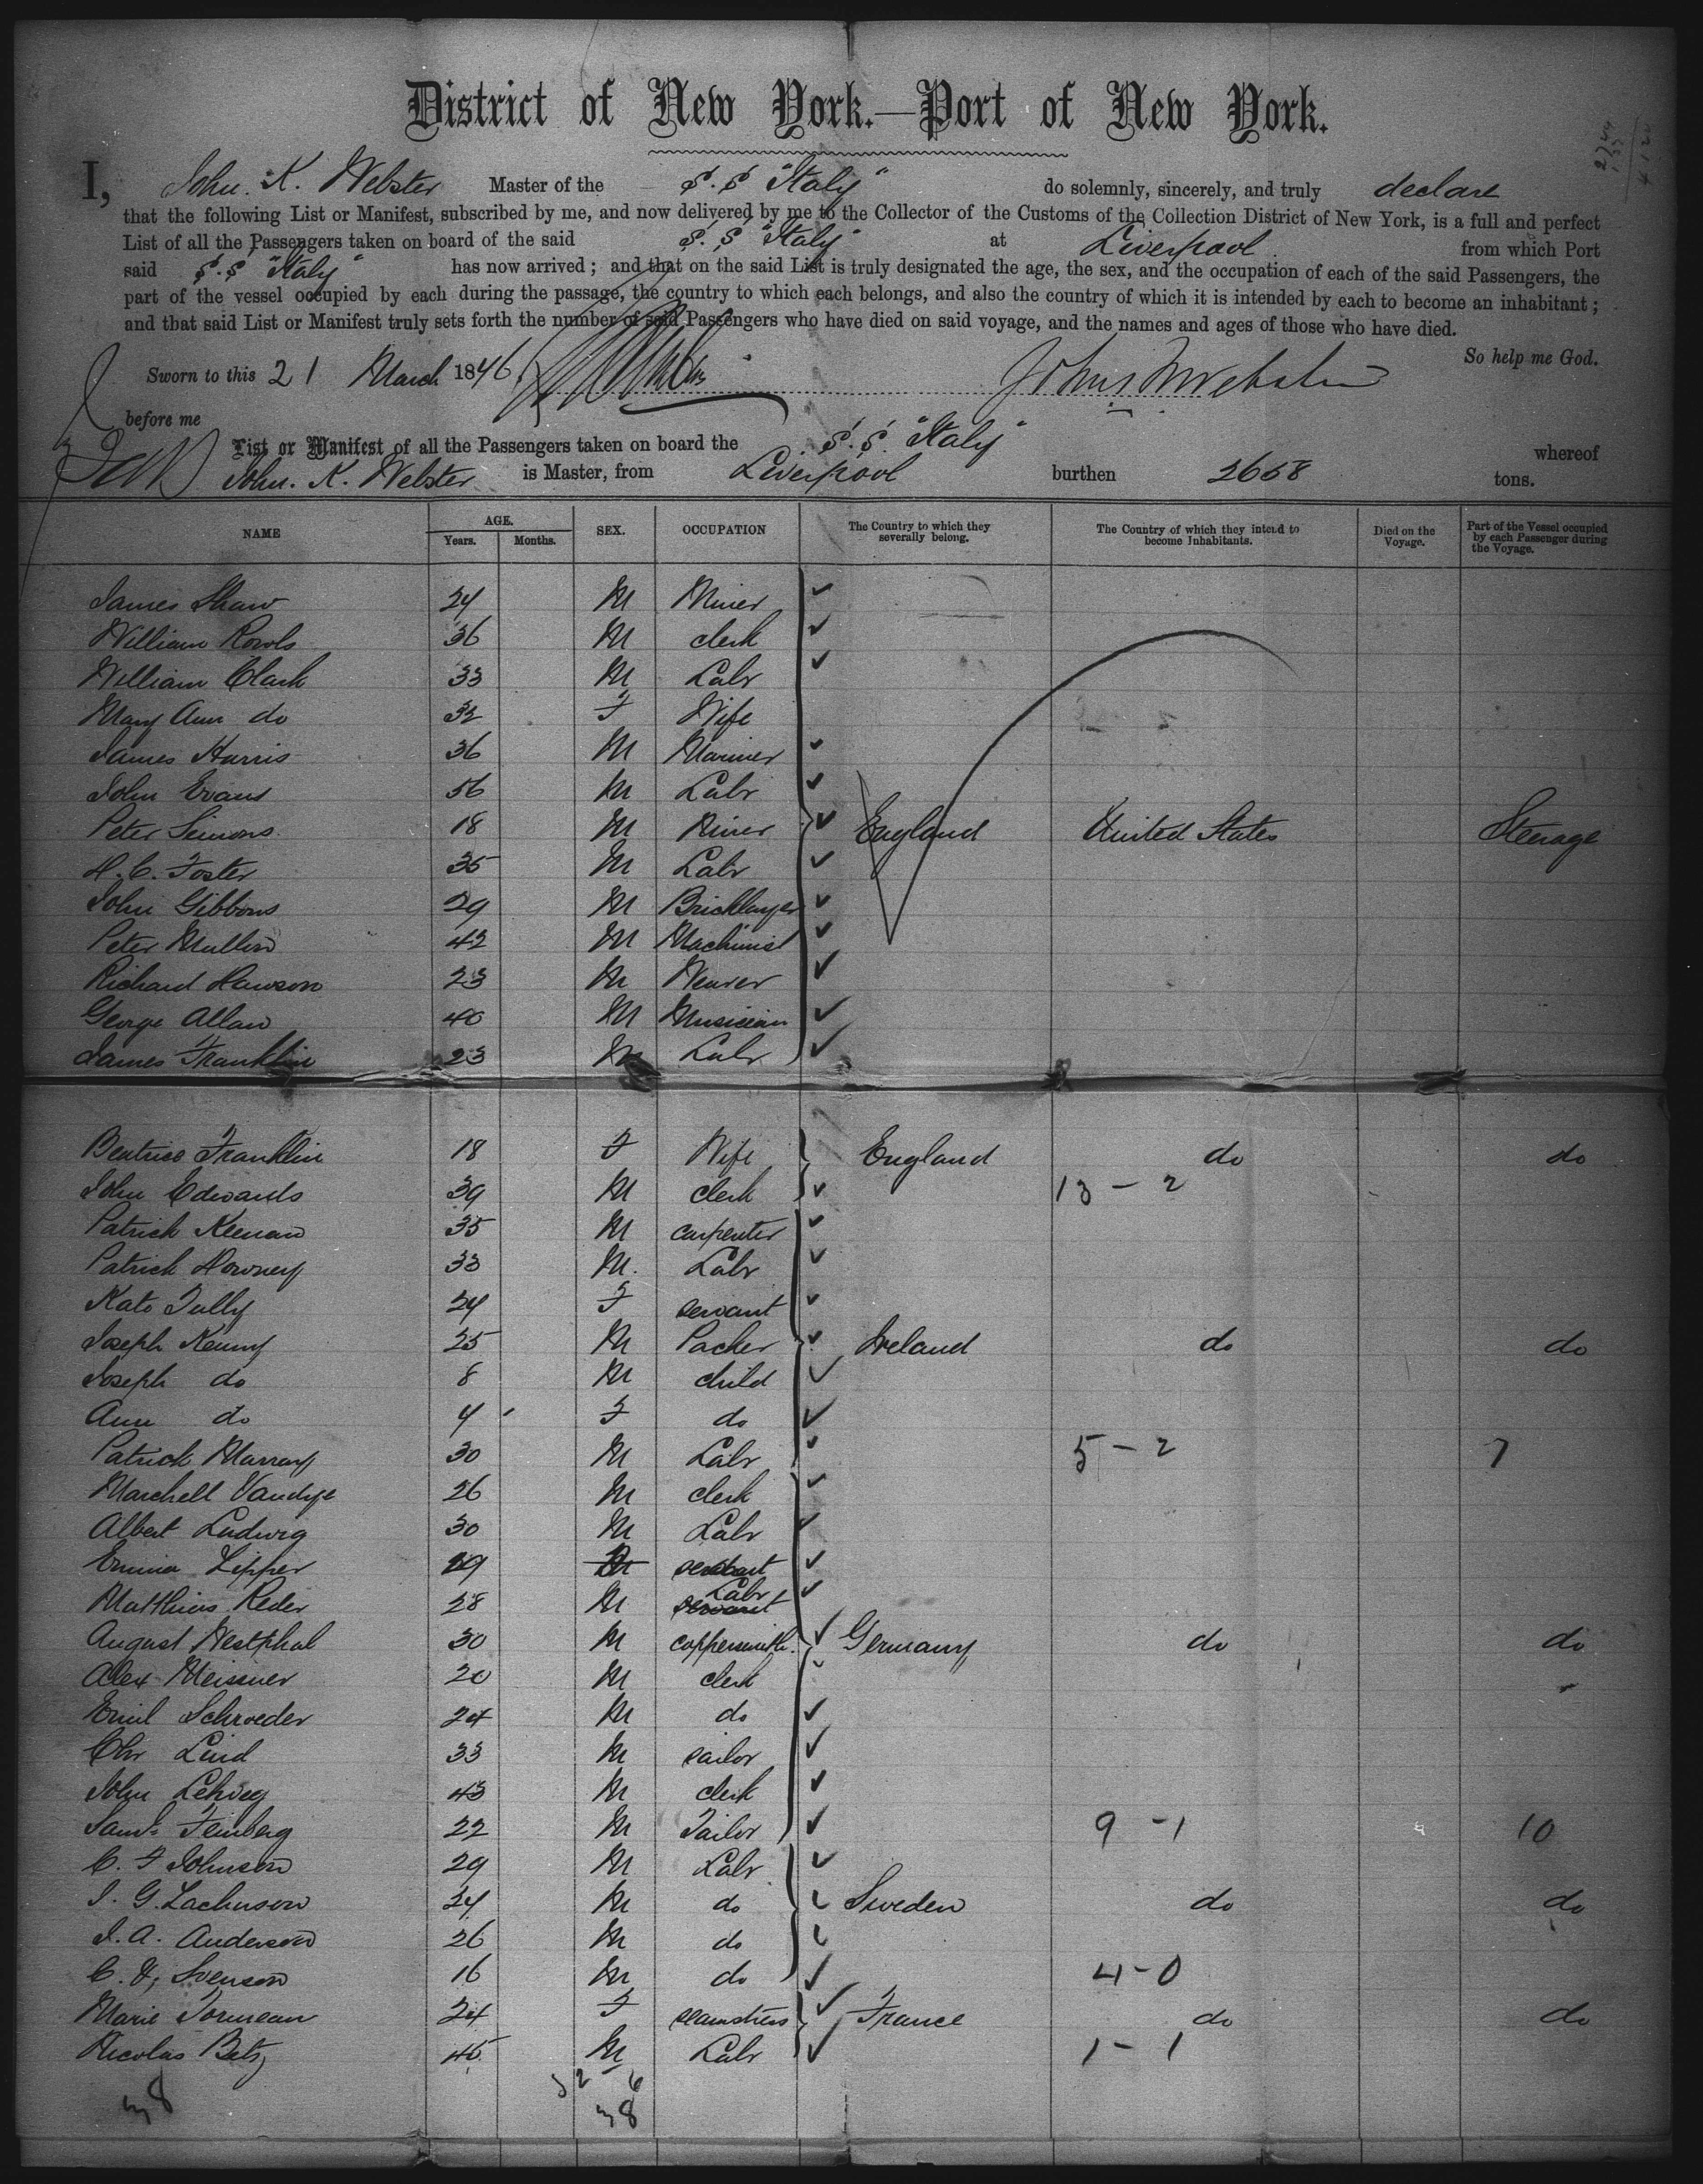 District of New York.—Port of New York.
I, John. K. Webster Master of the S.S "Italy" do solemnly, sincerely, and truly declare
that the following List or Manifest, subscribed by me, and now delivered by me to the Collector of the Customs of the Collection District of New York, is a full and perfect
List of all the Passengers taken on board of the said S.S "Italy" at Liverpool from which Port
said S.S "Italy" has now arrived; and that on the said List is truly designated the age, the sex, and the occupation of each of the said Passengers, the
part of the vessel occupied by each during the passage, the country to which each belongs, and also the country of which it is intended by each to become an inhabitant;
and that said List or Manifest truly sets forth the number of said Passengers who have died on said voyage, and the names and ages of those who have died.
So help me God.
Sworn to this 21 March 1846
before me
List or Manifest of all the Passengers taken on board the S.S. "Italy" whereof
John. K. Webster is Master, from Liverpool burthen 2658 tons.
NAME AGE. Years. Months. SEX. OCCUPATION The Country to which they severally belong. The Country of which they intend to become Inhabitants. Died on the Voyage. Part of the Vessel occupied by each Passenger during the Voyage.
James Shaw 24 M Miner
William Rowls 36 M clerk
William Clark 33 M Labr
Mary Ann do 32 F Wife
James Harris 36 M Mariner
John Evans 56 M Labr
Peter Simons 18 M Miner England United States Steerage
H. C. Foster 35 M Labr
John Gibbons 29 M Bricklayer
Peter Mullin 42 M Machinist
Richard Dawson 23 M Weaver
George Allan 40 M Musician
James Franklin 23 M Labr
Beatrice Franklin 18 F Wife England do do
John Edwards 39 M clerk 13 - 2
Patrick Keenan 35 M carpenter
Patrick Downey 33 M. Labr
Kate Tully 24 F servant
Joseph Kenny 25 M Packer Ireland do do
Joseph do 8 M child
Ann do 4 F do
Patrick Murray 30 M Labr 5 - 2 7
Marchell Vandye 26 M clerk
Albert Ludwig 30 M Labr
Emma Lipper 19 servant
Matthias Reder 28 M Labr
August Westphal 30 M coppersmith. Germany do do
Alex Meissner 20 M clerk
Emil Schroeder 24 M do
Chr Lind 33 M sailor
John Lehveg 43 M clerk
Saml Feinberg 22 M Tailor 9 - 1 10
C. F Johnson 29 M Labr
J. G. Zachrison 24 M do Sweden do do
J. A. Anderson 26 M do
C. Svenson 16 M do 4-0
Marie Tormean 24 F seamstress France do do
Nicolas Betz 45 M Labr 1 - 1
32 6
38 38